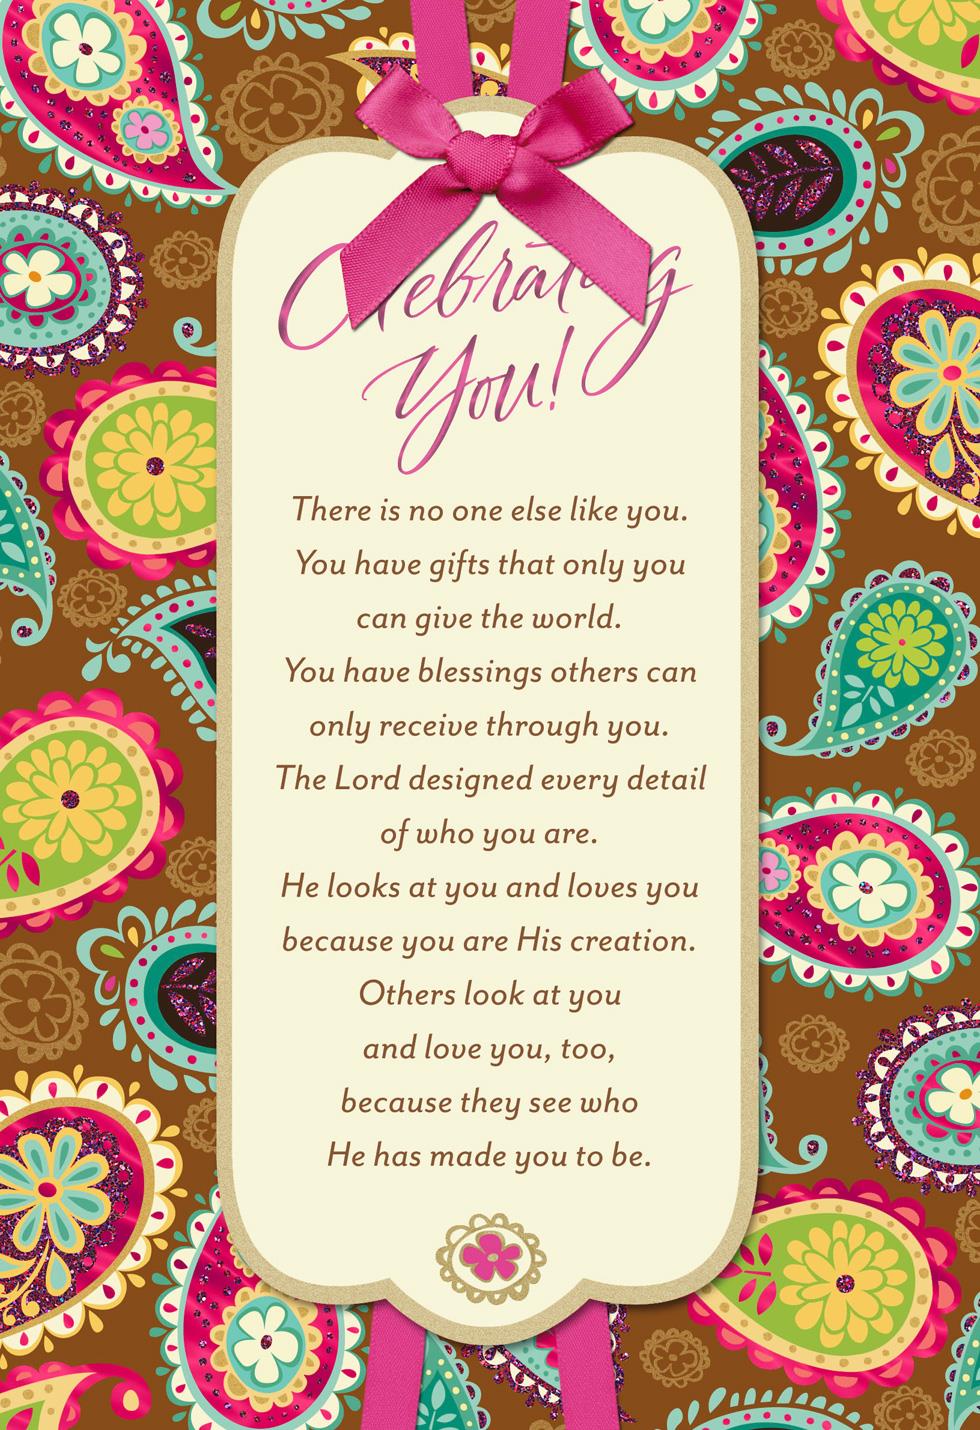 Celebrating
You!
There is no one else like you.
You have gifts that only you
can give the world.
You have blessings others can
only receive through you.
The Lord designed every detail
of who you are.
He looks at you and loves you
because you are His creation.
Others look at you
and love you, too,
because they see who
He has made you to be.